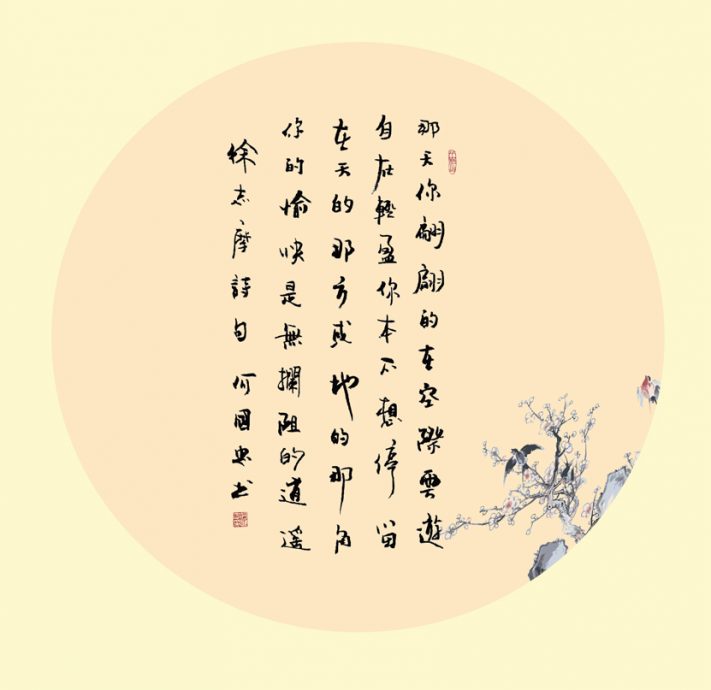 那天你翩翩的在空際雲遊
自在輕盈你本不想停留
在天的那方或地的那角
你的愉快是無攔阻的逍遥
徐志摩詩句 何國忠书